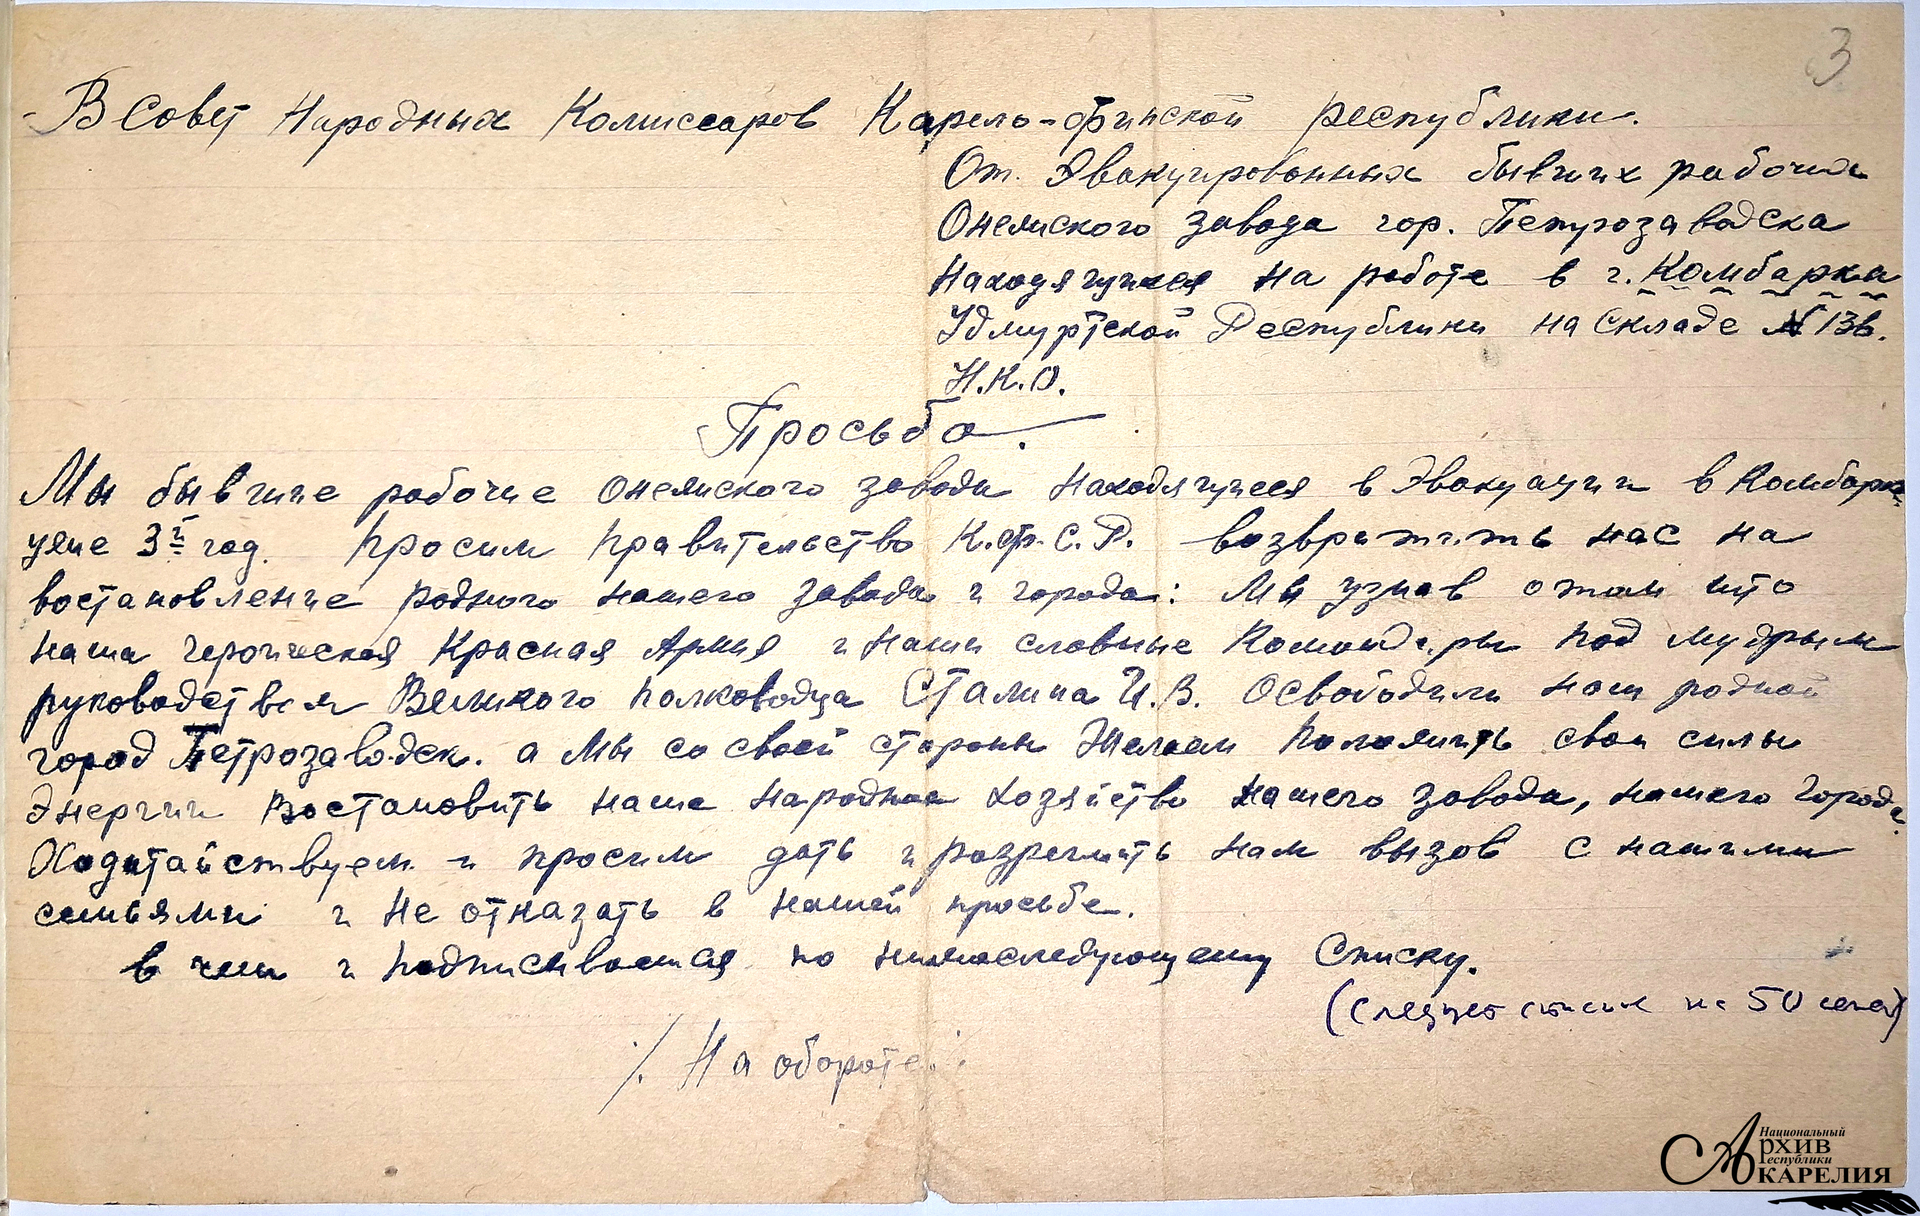 3
В Совет Народных Комиссаров Карело-Финской республики.
От Эвакуированных бывших рабочих
Онежского завода гор. Петрозаводска
находящихся на работе в г. Камбарка
Удмуртской Республики на складе N 136.
Н.К.О.
Просьба.
Мы бывшие рабочие Онежского завода находящиеся в Эвакуации в Камбарке
уже 3й год. Просим правительство К.Ф.С.Р. возвратить нас на
востановление родного нашего завода и города: Мы узнав о том что
наша героическая Красная Армия и наши славные Командиры под мудрым
руководством Великого полководца Сталина И.В. Освободили наш родной
город Петрозаводск. а мы со своей стороны Желаем положить свои силы
Энергии Востановить наше народное хозяйство нашего завода, нашего города.
Ходатайствуем и просим дать и разрешить нам вызов с нашими
семьями и не отказать в нашей просьбе.
в чем и подписываемся по нижеследующему Списку.
(следует список на 50 семей)
/. На обороте.
Национальный
Архив
Республики
Карелия